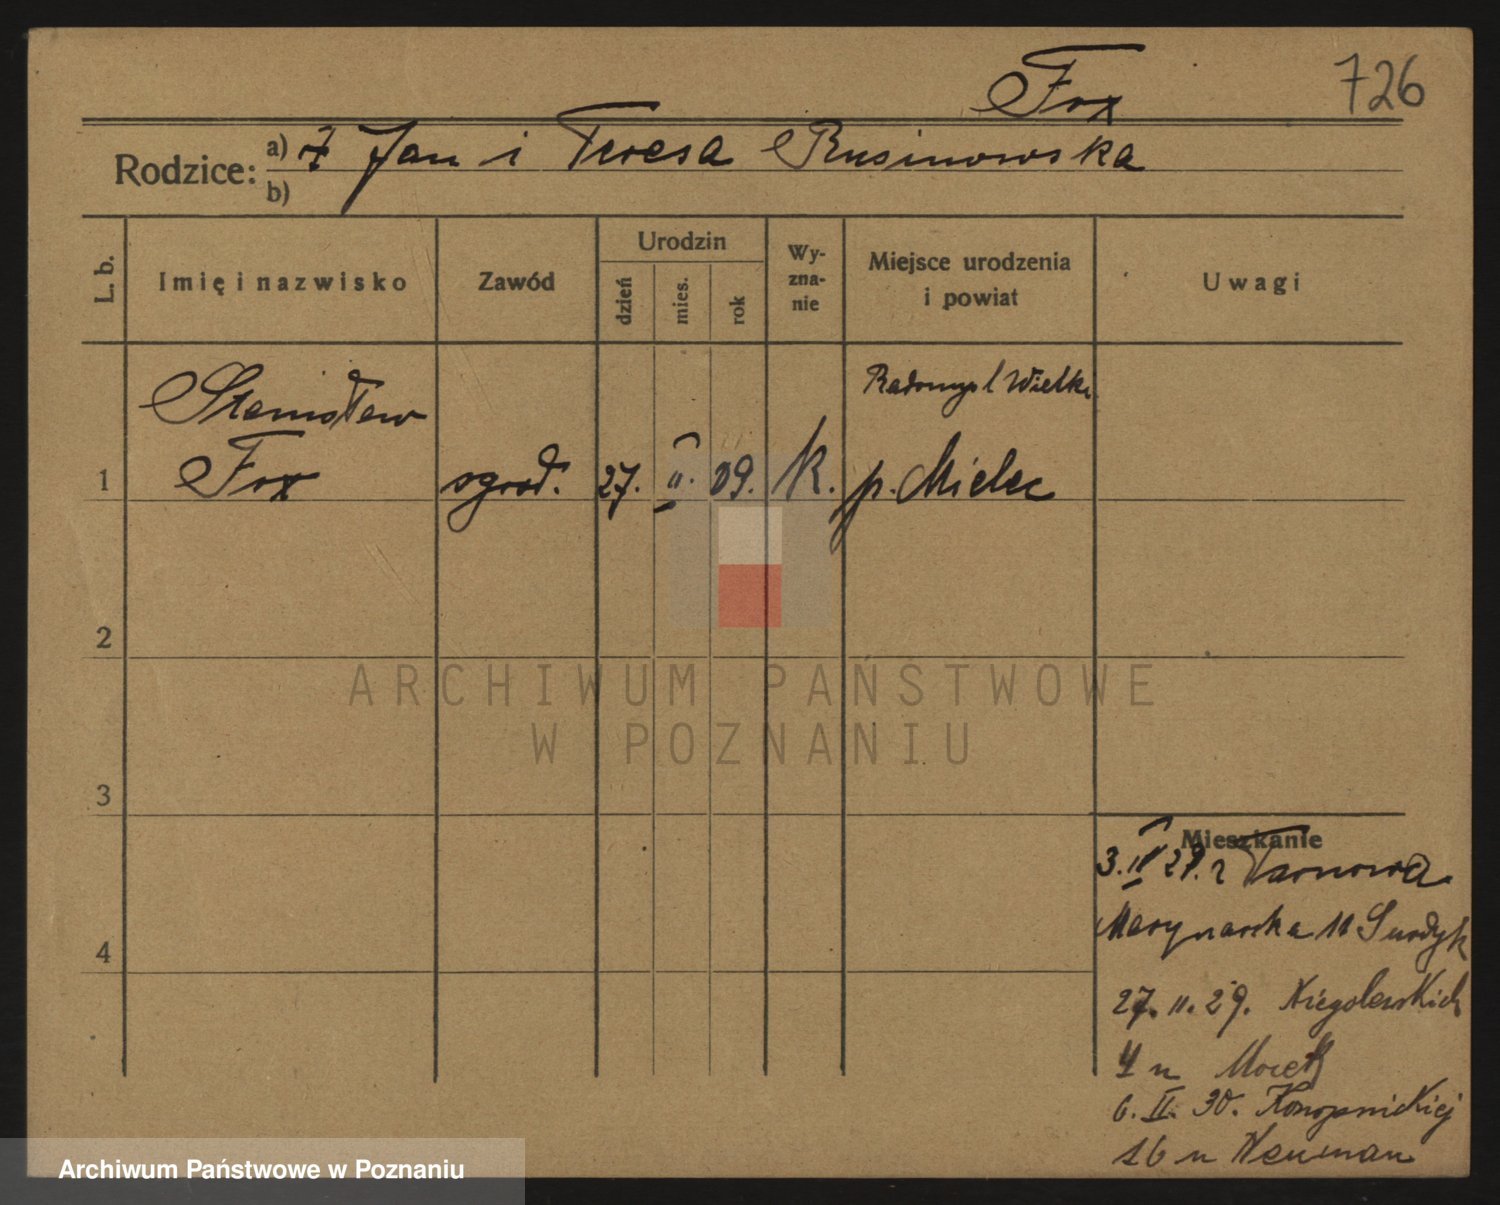 Fox
726
Rodzice: a) Jan i Teresa Rusinowska
b)
L. b.
Imię i nazwisko
Zawód
Urodzin
dzień
mies.
rok
Wy-
zna-
nie
Miejsce urodzenia
i powiat
Uwagi
Stanisław
Fox
Radomyśl Wielki
1
ogrod.
27.
II.
09.
K.
p. Mielec
2
3
4
Mieszkanie
29. z Tarnowa
Marynarska 11 Surdyk
27. 11. 29. Niegolewskich
6. II. 30. Konopnickiej
16 u Neuman
ARCHIWUM PAŃSTWOWE
W POZNANIU
Archiwum Państwowe w Poznaniu